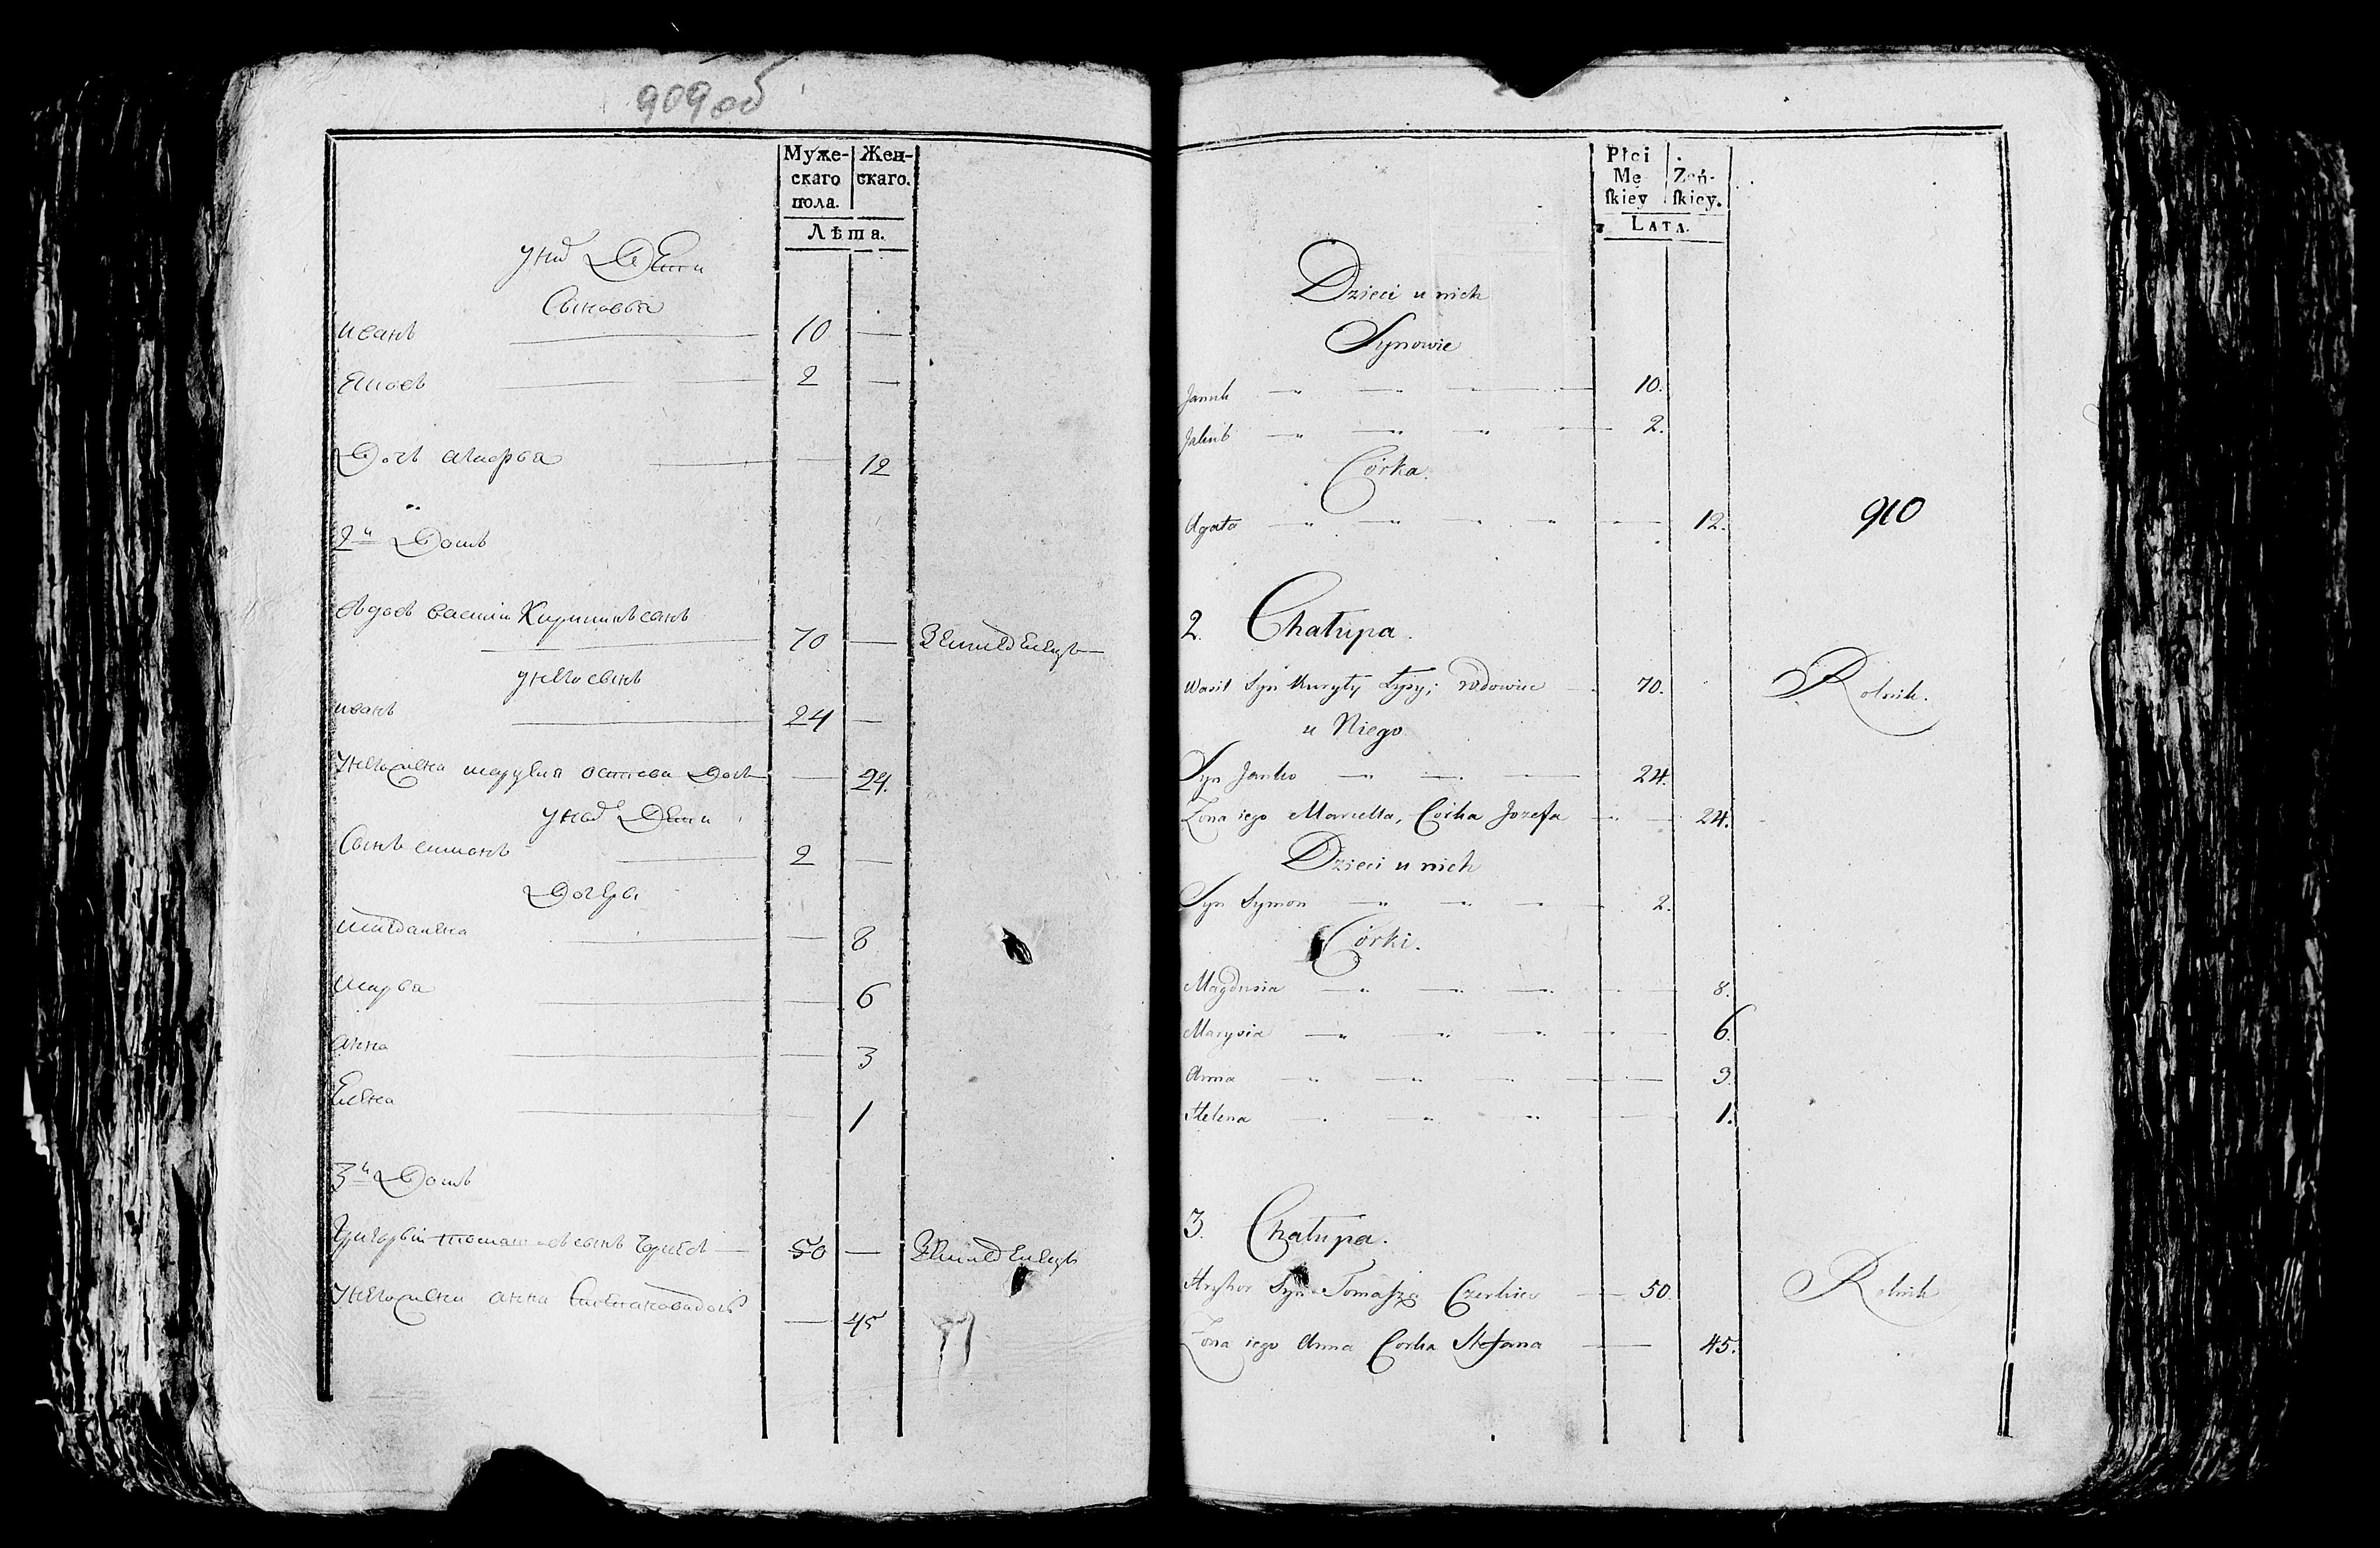 909 об
Муже-
скаго
пола.
Жен-
скаго.
Лѣта.
Дѣти
Сыновья
иванъ — 10 —
2 —
Дочь — 12
2й Домъ
василий
70 —
у него сынъ
иванъ — 24 —
у него жена Дочь — 24.
Дѣти
Сынъ симонъ — 2 —
Дочери
магдалена — 8
марья — 6
анна — 3
Елена — 1
3й Домъ
Григорий сынъ — 50 —
у него жена анна — 45
Płci
Mę
ſkiey
Żeń-
ſkiey.
LATA.
Dzieci u nich
Synowie
Januk — 10.
Jakub — 2.
Córka.
Agata — 12.
910
2. Chałupa.
Wasil Syn Kuryły Łysy, wdowiec — 70. Rolnik.
u Niego
Syn Janko — 24.
Żona iego Marcella, Córka Jozefa — 24.
Dzieci u nich
Syn Symon — 2.
Córki.
Magdusia — 8.
Marysia — 6.
Anna — 3.
Helena — 1.
3. Chałupa.
Hryhor Syn Tomaſza — 50. Rolnik
Żona iego Anna Corka Stefana — 45.